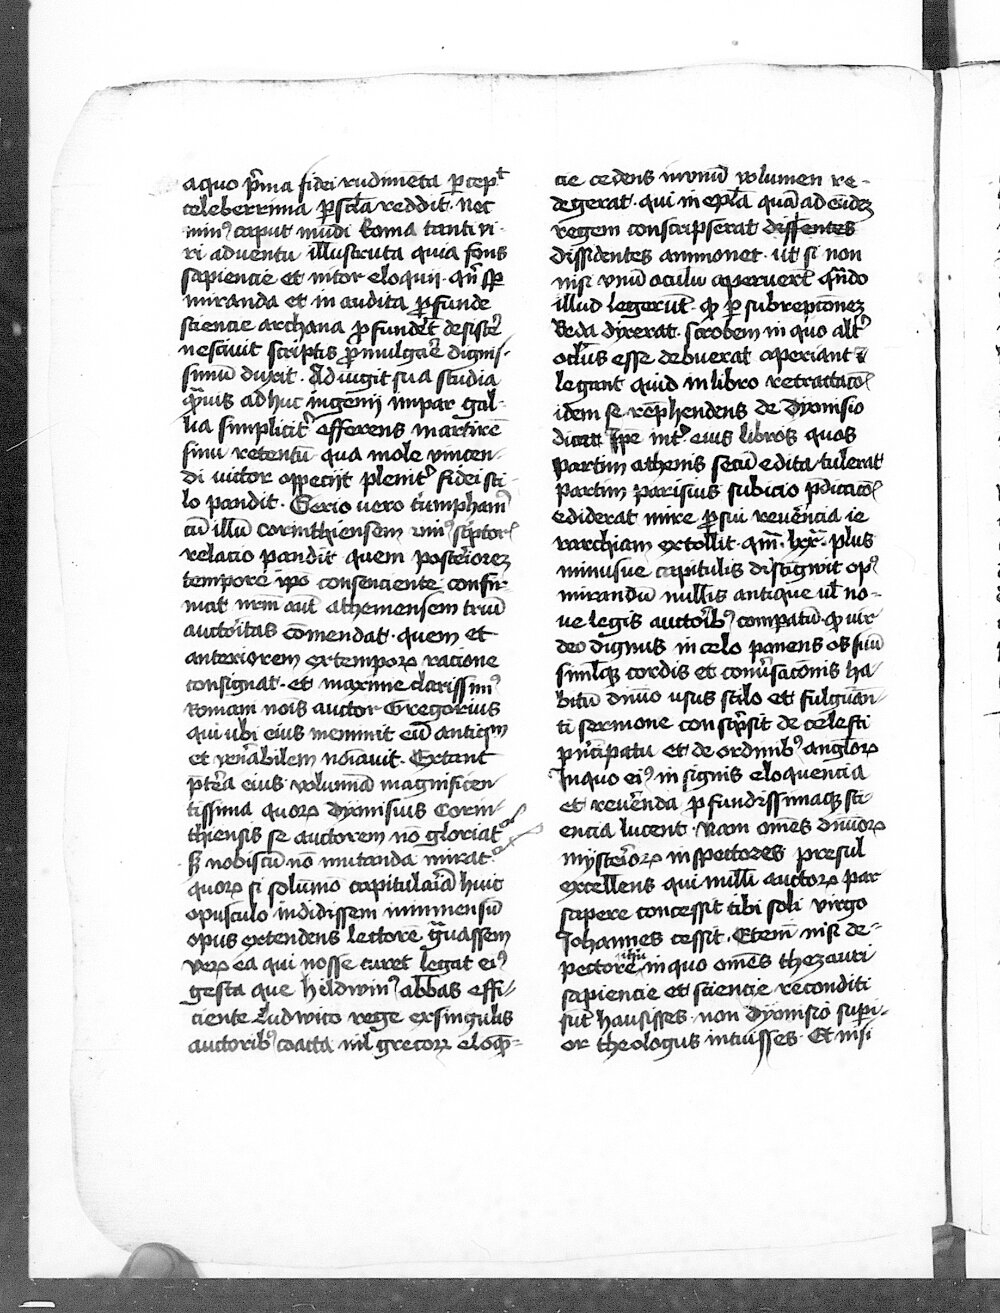 a quo p̄ma fidei rudimēta p̱cepᵗ
celeberrima p̱sc̄la reddit · Nec
minꝰ caput mūdi Roma tanti vi-
ri adventu illustrata quia fons
sapiencie et nitor eloquii · qn̄ sp̱
miranda et in audita ꝓfunde
sciencie archana ꝓfundēt desistēr
nescivit scriptis ꝓmulgaʳe dignis-
simū duxit · Adiūgit sua studia
p̄us adhuc ingenij impar gal-
lia simplicitʳ efferens martirē
sinu retentū qua mole vincen-
di victor oppeciit plenitʳ fidei sti-
lo pandit · Serio vero
cū illū corinthiensem uniꝰ sc̄ptorꝭ
relacio pandit quem posterioreꝫ
tempore ip̄o consenciente confir-
mat nr̄m aūt atheniensem triū
auctoritas cōmendat · quem et
anteriorem ex temporꝝ racione
consignat · et maxime clarissimꝰ
Romani nōis auctor Gregorius
qui ubi eius meminit eū antiqm̄
et venābilem noīavit · Extant
p̄tēa eius volumīa magnificen-
tissima quorꝝ dyonisius Corin-
thiensis se auctorem nō gloriatʳ
sꝫ nobiscū nō mutanda miratʳ
quorꝝ si solūmo capitularīa huic
opusculo indidissem inmensū
opus extendens lectorē gᵃvassem
verꝝ ea qui nosse curet legat eiꝰ
gesta que hildwinꝰ abbas effi-
ciente Ludwico rege ex singulis
auctoribꝰ coacta nil grecorꝝ eloq̄-
cie cedens in unū volumen re-
degerat · qui in ep̄la quā ad eūdeꝫ
regem conscripserat dissentes
dissidentes ammonet · ut si non
nisi unū oculū aperuerūt qn̄do
illud legerūt · ꝙ p̱ subrepcioneꝫ
Beda dixerat · scrobem in quo altʳ
oclūs esse debuerat aperiant ⁊
legant quid in libro retractacōꝭ
idem se rep̄hendens de dyonisio
dicat Ip̄e intʳ eius libros quos
partim athenis secū edita tulerat
partim parisius subicio p̄dicacōꝭ
ediderat mire ꝓ sui revēncia ie
rarchiam extollit · qm̄ · lxx · plus
minusve capitulis distīgwit opꝰ
mirandū nullis antique ul̄ no-
ve legis auctoribꝰ compatū · ꝙ vir
deo dignus in celo ponens os suū
similqꝫ cordis et conv̄sacōnis ha-
bitū divīo usus stilo et fulguran-
ti sermone consc̄psit de celesti
p̄ncipatu et de ordinibꝰ anglorꝝ
In quo eiꝰ insignis eloquencia
et revēnda ꝓfundissimaqꝫ sci-
encia lucent · Nam om̄es divīorꝝ
mysteriorꝝ inspectores presul
excellens qui nulli auctorꝝ par
sapere concessit tibi soli virgo
Johannes cessit · Eteni nisi de-
pectore ihū in quo om̄es thezauri
sapiencie et sciencie reconditi
sūt hausisses · non dyonisio supi-
or theologus intuisses · Et nisi